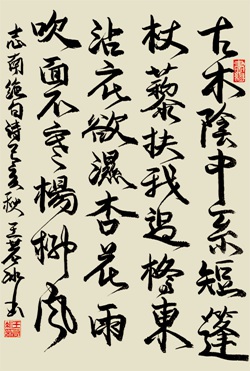 古木陰中系短蓬
杖藜扶我過橋東
沾衣欲濕杏花雨
吹面不寒楊柳風
志南絕句詩己亥秋王